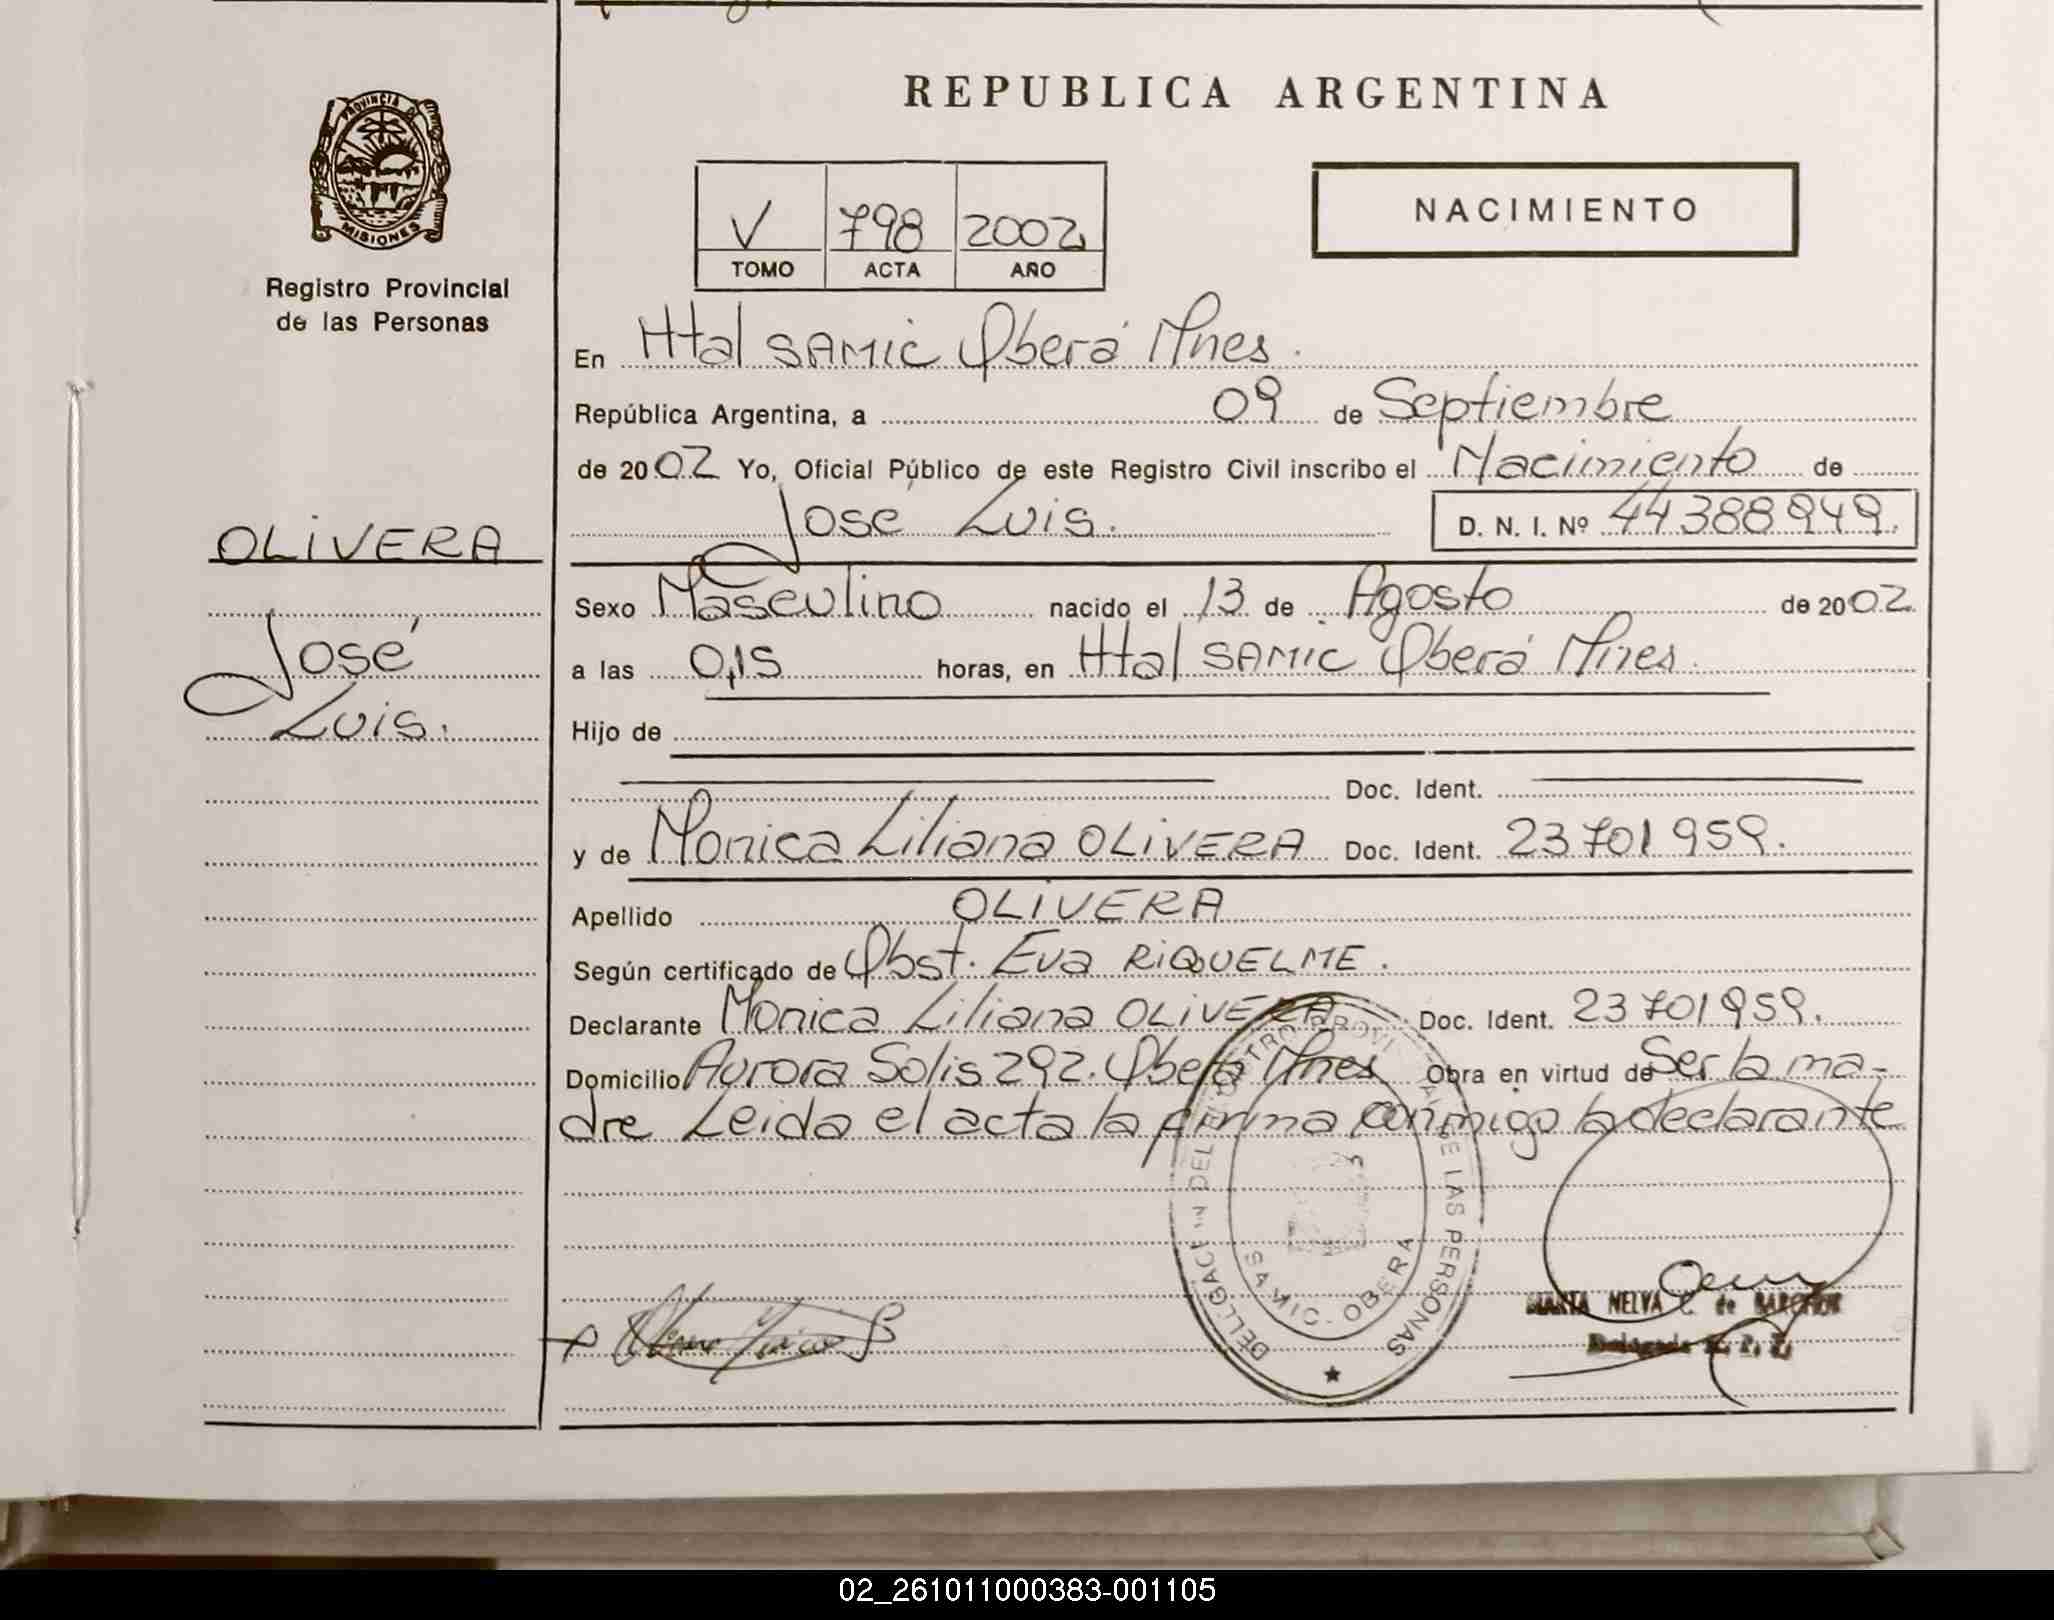 PROVINCIA DE
MISIONES
Registro Provincial
de las Personas
OLIVERA
José
Luis.
REPUBLICA ARGENTINA
V 798 2002
TOMO ACTA AÑO
NACIMIENTO
En Htal SAMIC Oberá Mnes.
República Argentina, a 09 de Septiembre
de 2002 Yo, Oficial Público de este Registro Civil inscribo el Nacimiento de
José Luis. D. N. I. Nº 44388949.
Sexo Masculino nacido el 13 de Agosto de 2002
a las 0,15 horas, en Htal SAMIC Oberá Mnes.
Hijo de
Doc. Ident.
y de Monica Liliana OLIVERA Doc. Ident. 23701959.
Apellido OLIVERA
Según certificado de Obst. Eva RIQUELME.
Declarante Monica Liliana OLIVERA Doc. Ident. 23701959.
Domicilio Aurora Solis 292. Oberá Mnes Obra en virtud de Ser la ma-
dre Leida el acta la firma conmigo la declarante
DEL REGISTRO PROVINCIAL DE LAS PERSONAS
SAMIC - OBERA
MARTA NELVA C. de
Delegada R. P. P.
02_261011000383-001105